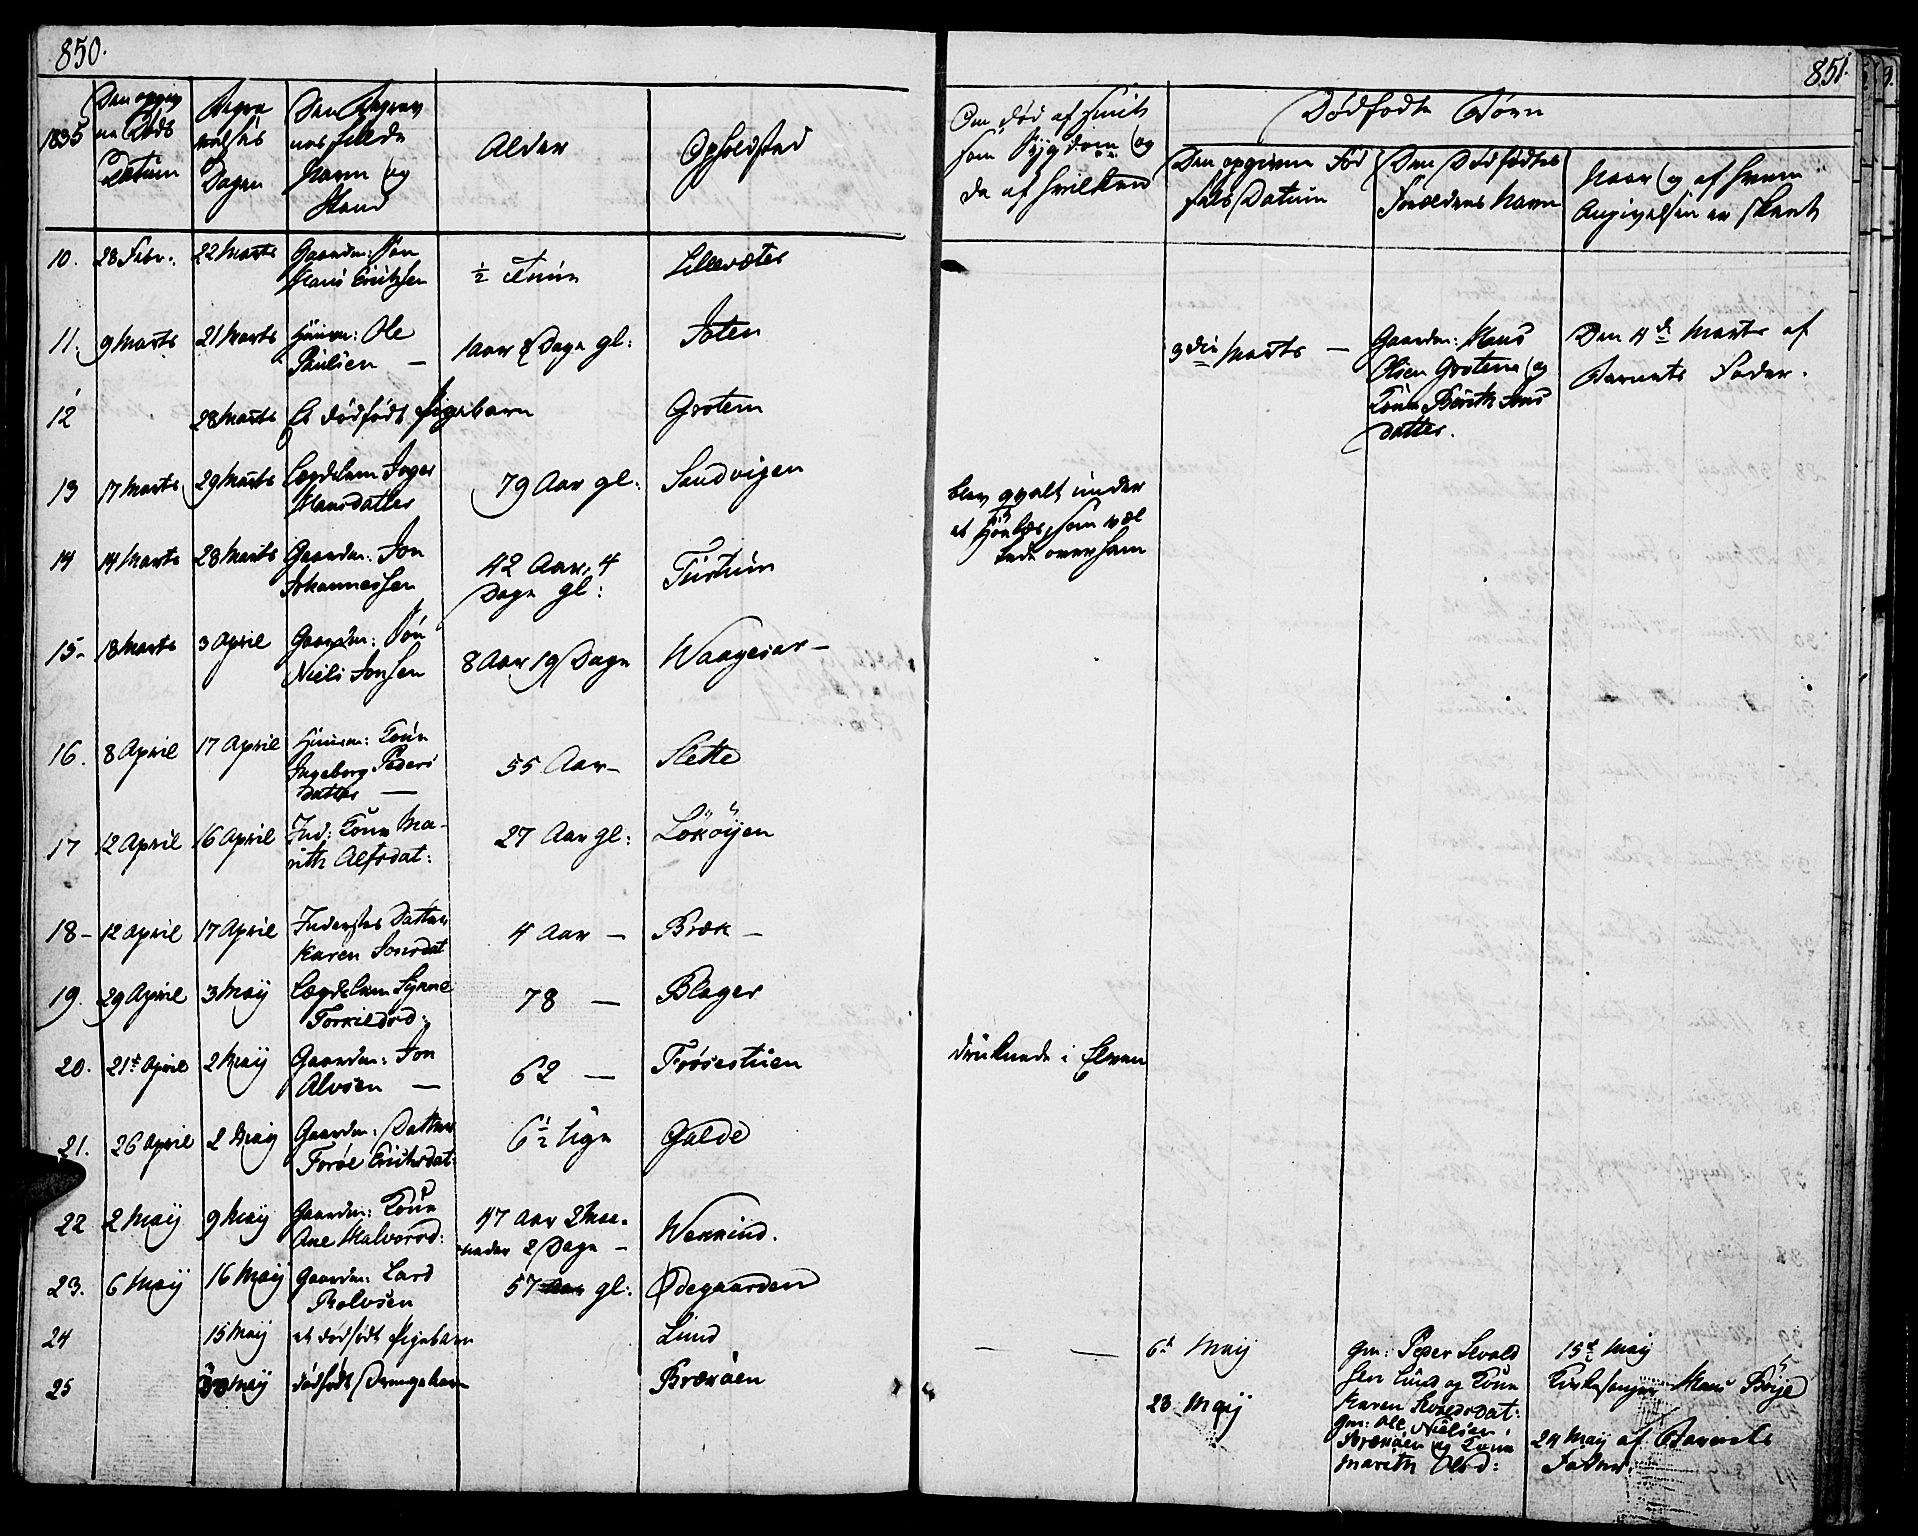 850.
1835
Den opgivne Døds Datum
Begravelses Dagen
Den Begravnes fulde Navn og Stand
Alder
Opholdsted
10. 28 Febr. 22 Marts Gaardm: Søn Hans Erichsen ½ Time Lillevæter
11. 9 Marts 21 Marts Huusm: Ole Paulsen — 1 Aar 8 Dage gl: Joten
12 28 Marts Et dødfødt Pigebarn Grotem
13 17 Marts 29 Marts Lægdslem Inger Hansdatter 79 Aar gl: Sandvigen
14 14 Marts 28 Marts Gaardm: Jon Johannessen 42 Aar, 4 Dage gl: Turtum
15- 18 Marts 3 April Gaardm: Søn Niels Jonsen 8 Aar 19 Dage Waagesar —
16. 8 April 17 April Huusm: Kone Ingeborg Pedersdatter — 55 Aar — Slette
17 12 April 16 April Ind: Kone Marith Alfsdat: 27 Aar gl: Lököyen
18- 12 April 17 April Inderstes Datter Karen Jonsdat 4 Aar — Bræk —
19. 29 April 3 Maij Lægdslem Synne Torkildsd: 78 — Blager
20. 21de April 2 Maij Gaardm: Jon Alvsen — 62 — Frøsestuen
21. 26 April 2 Maij Gaardm: Datter Torøe Erichsdat: 6½ Uge Galde
22 2 Maij 9 Maij Gaardm: Kone Ane Halvorsd: 47 Aar 2 Maaneder 2 Dage — Wekkind.
23. 6 Maij 16 Maij Gaardm: Lars Rolvsen 57 Aar gl: Ødegaarden
24 15 Maij et dødfødt Pigebarn Lund
25 Maij dødfødt Drengebarn Brækøen
851.
Om død af hvilken Sygdom og da af hvilken
Dødfødte Børn
Den opgivne Fødsels Datum
Den Dødfødtes Forældres Navn
Naar og af hvem Angivelsen er skeet
3die Marts — Gaardm: Hans Olsen Grotem og Kone Berith Jonsdatter. Den 4de Marts af Barnets Fader.
blev qvalt under
et Höelæs, som væl
tede over ham
druknede i Elven
— — 6te Maij Gm: Peder Sevaldsen Lund og Kone Karen Sevaldsdat: 15de Maij Kirkesanger Hans Böje
23 Maij Gm: Ole Nielsen Brækøen og Kone Marith Olsd: 24 Maij af Barnets Fader.